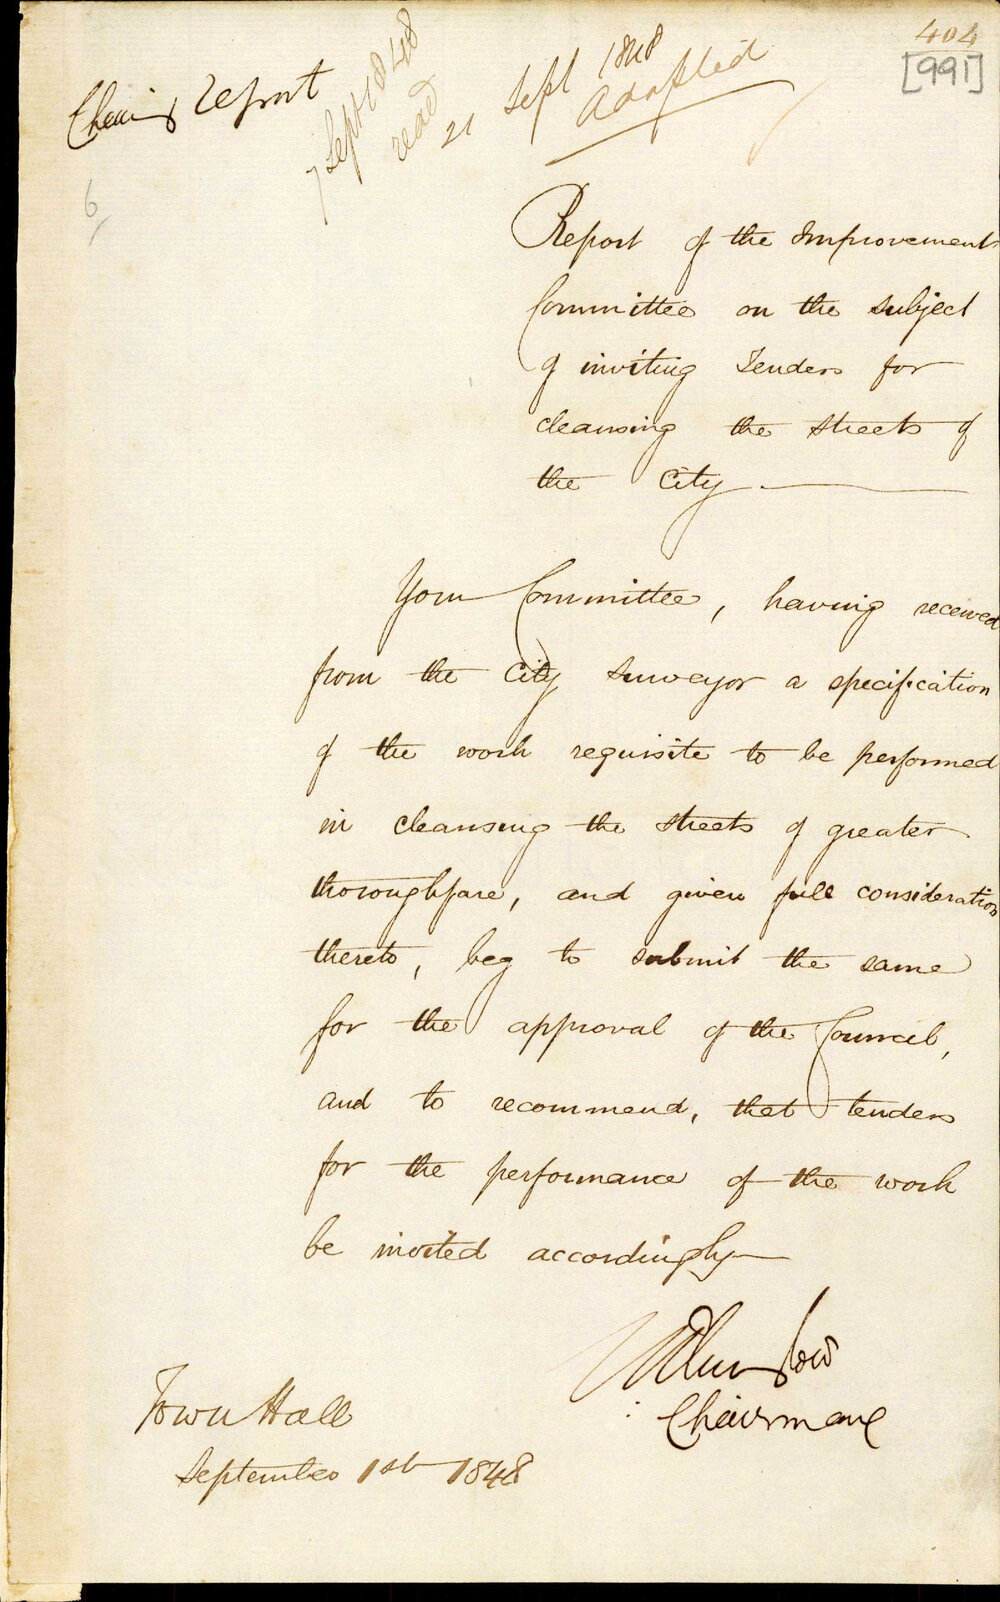 404
[991]
report
7 Sept 1848
read
21 Sept 1848
Adopted
6
Report of the Improvement
Committee on the subject
of inviting Tenders for
cleansing the streets of
the City
Your Committee, having received
from the City Surveyor a specification
of the work requisite to be performed
in cleansing the streets of greater
thoroughfare, and given full consideration
thereto, beg to submit the same
for the approval of the Council,
and to recommend, that tenders
for the performance of the work
be invited accordingly
Chairman
Town Hall
September 1st 1848